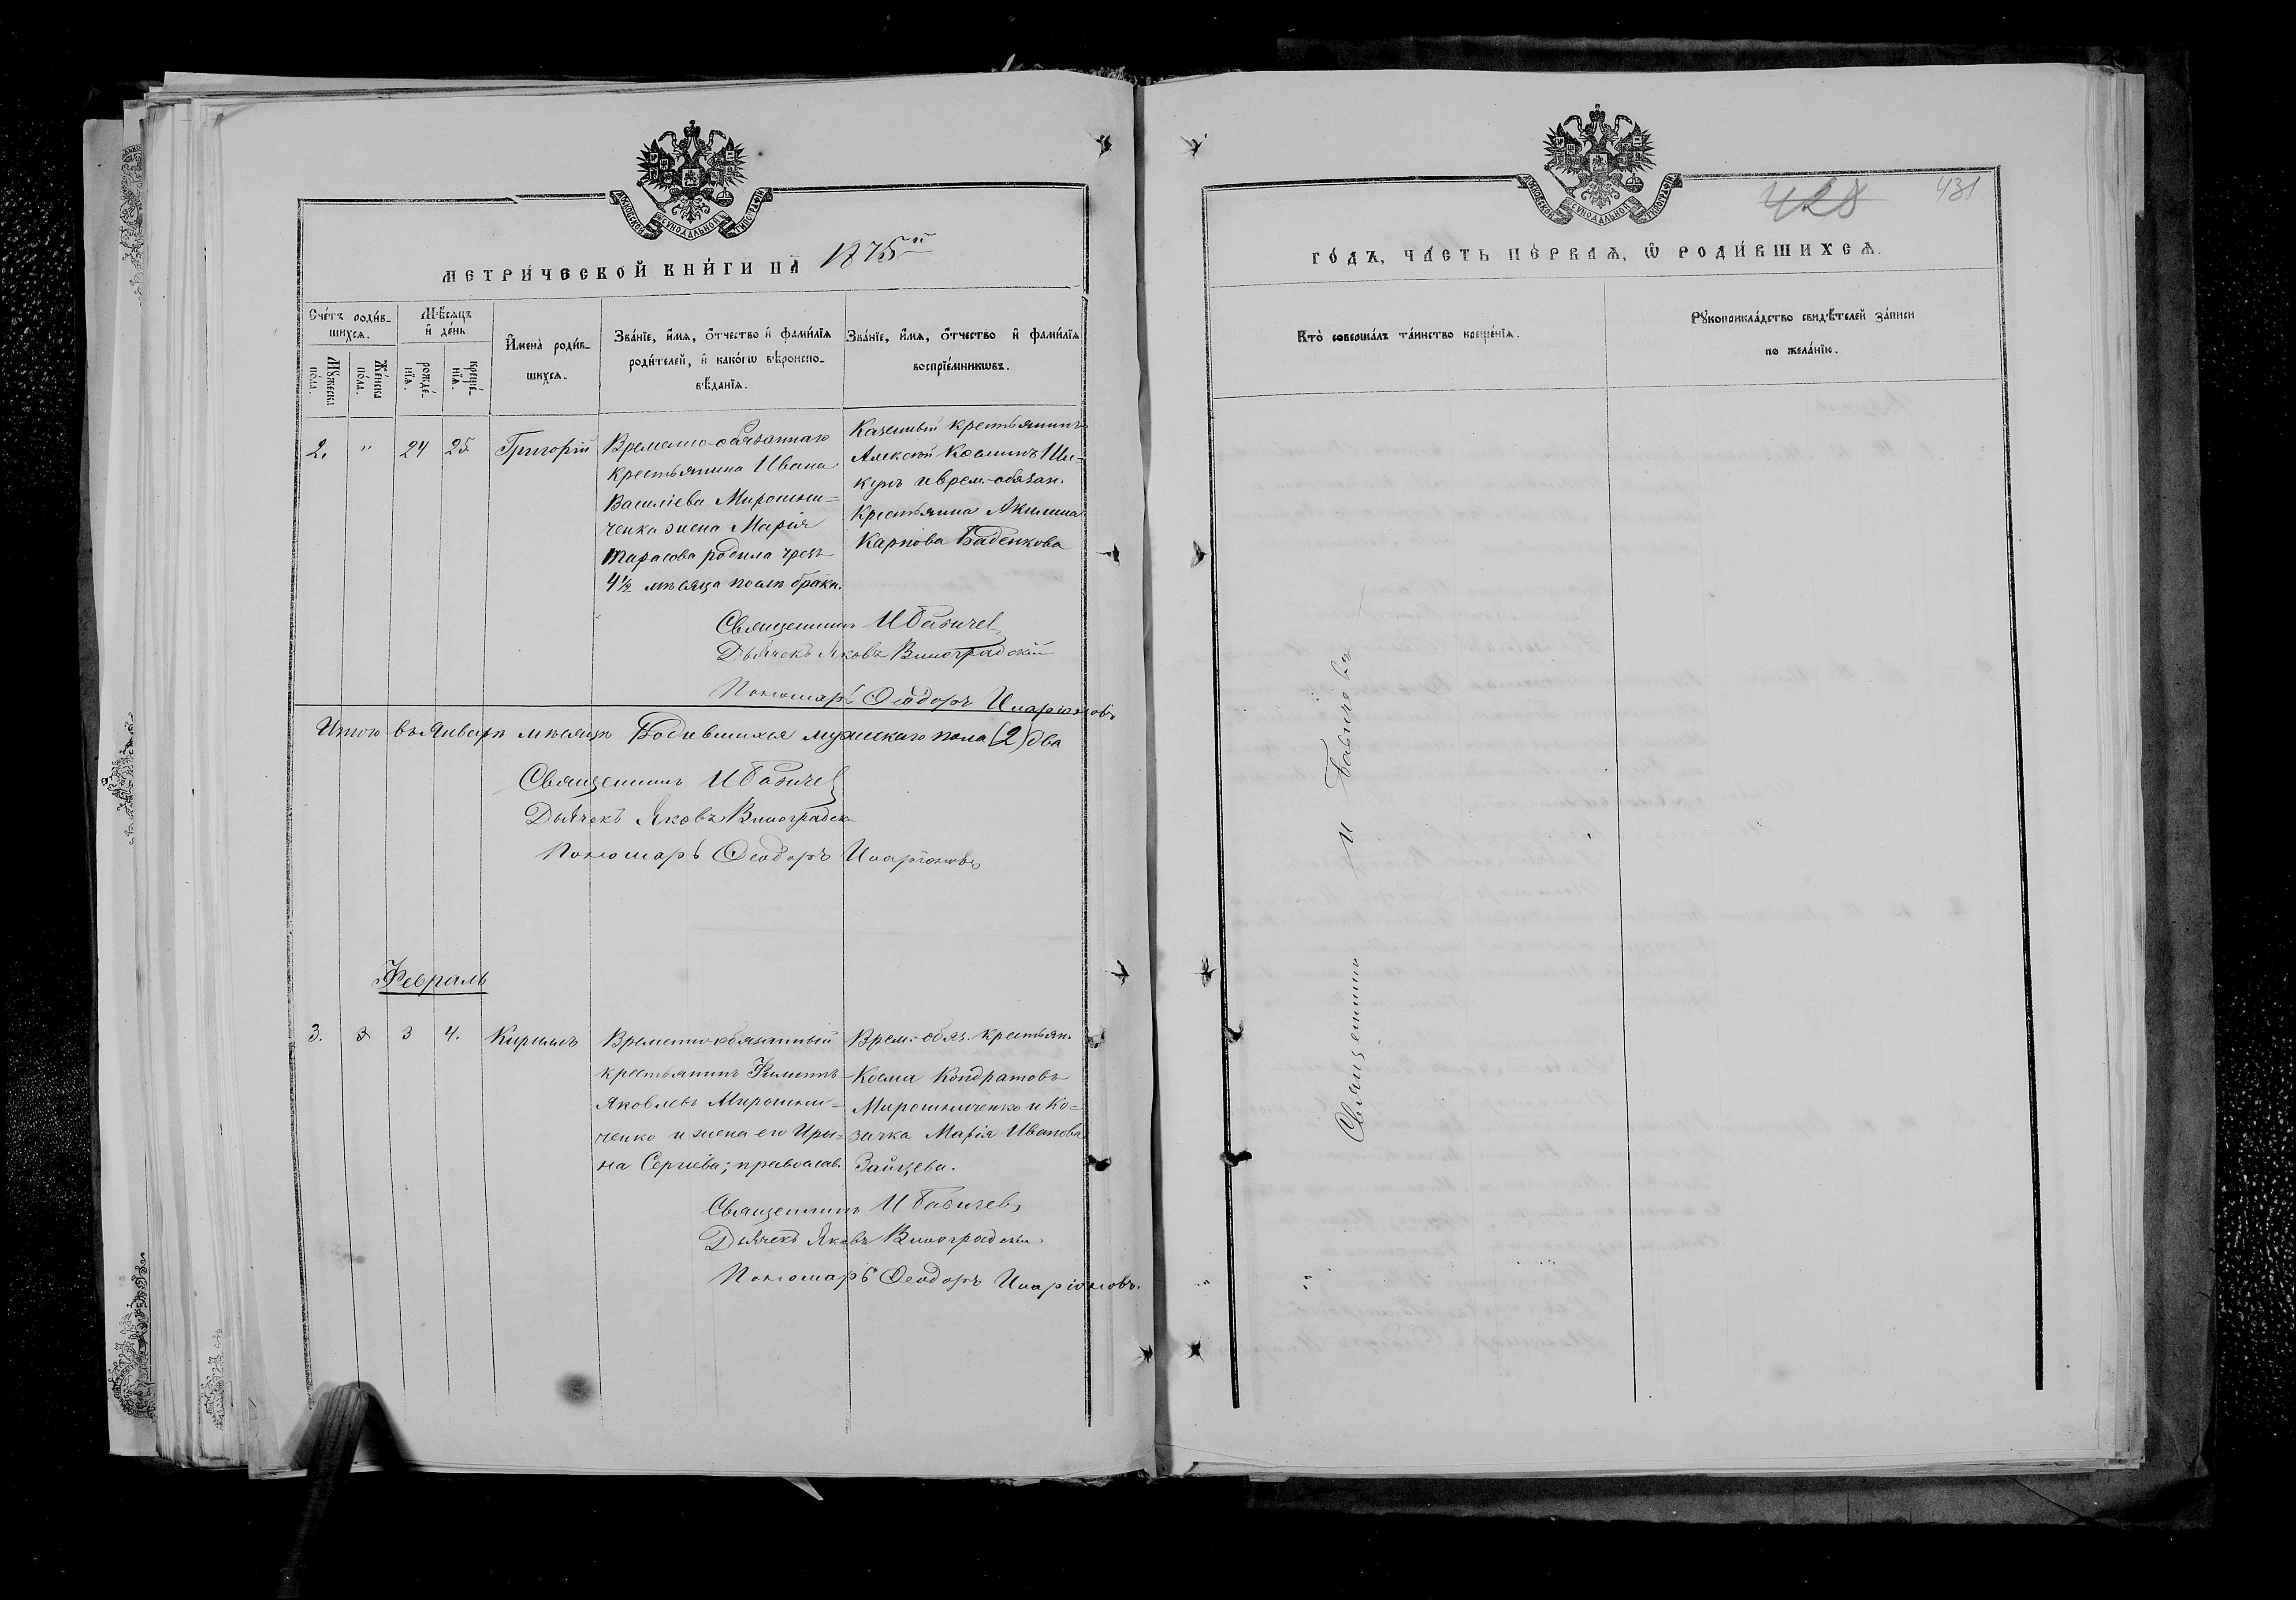 МОСКОВСКОЙ СѴНОДАЛЬНОЙ ТИПОГРАФІИ
МЕТРИ́ЧЕСКОЙ КНИ́ГИ НА̀ 1875й
Сче́тъ роди́в-
шихсѧ.
Мꙋ́жеска
по́ла.
Же́нска
по́ла.
Мѣ́сѧцъ
и҆ де́нь
рожде́-
нїѧ.
креще́-
нїѧ.
И҆мена̀ роди́в-
шихсѧ.
Зва́нїе, и҆́мѧ, ѻ҆́тчество и҆ фами́лїѧ
роди́телей, и҆ како́гѡ вѣроиспо-
вѣ́данїѧ.
Зва́нїе, и҆́мѧ, ѻ҆́тчество и҆ фами́лїѧ
воспрїе́мникѡвъ.
2. " 24 25. Григорій
Временно-обязаннаго
крестьянина Ивана
Василіева Мирошни=
ченка жена Марія
Тарасова родила чрезъ
4½ мѣсяца послѣ брака.
Казенный крестьянинъ
Алексѣй Косминъ Ши=
кунъ и врем.-обязан.
Крестьянка Акилина
Карпова Баденкова
Священникъ И Бабичев
Дьячекъ Яковъ Виноградскій
Пономарь Ѳеодоръ Иларіоновъ
Итого въ Январѣ мѣсяцѣ Родившихся мужескаго пола (2) два
Священникъ И Бабичев
Дьячекъ Яковъ Виноградск
Пономарь Ѳеодоръ Иларіоновъ
Февраль
3. 3 4. Кириллъ
Временно-обязанный
крестьянинъ Филиппъ
Яковлевъ Мирошни=
ченко и жена его Ири=
на Сергіева; православ.
Врем.-обяз. крестьян.
Косма Кондратовъ
Мирошниченко и Ко=
зачка Марія Иванова
Зайцева.
Священникъ И Бабичев
Дьячекъ Яковъ Виноградскій.
Пономарь Ѳеодоръ Иларіоновъ.
МОСКОВСКОЙ СѴНОДАЛЬНОЙ ТИПОГРАФІИ
428
431
ГО́ДЪ, ЧА́СТЬ ПЕ́РВАѦ, Ѡ҆ РОДИ́ВШИХСѦ.
Кто̀ соверша́лъ та́инство креще́нїѧ.
Рꙋкоприкла́дство свидѣ́телей за́писи
по жела́нїю.
Священникъ И Бабичевъ